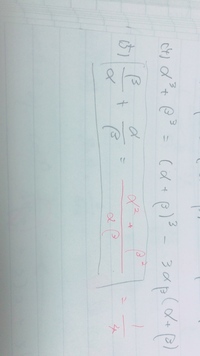 (4) α³ + β³ = (α+β)³ - 3αβ(α+β)
(5) β/α + α/β = (α² + β²)/(αβ) = 1/4